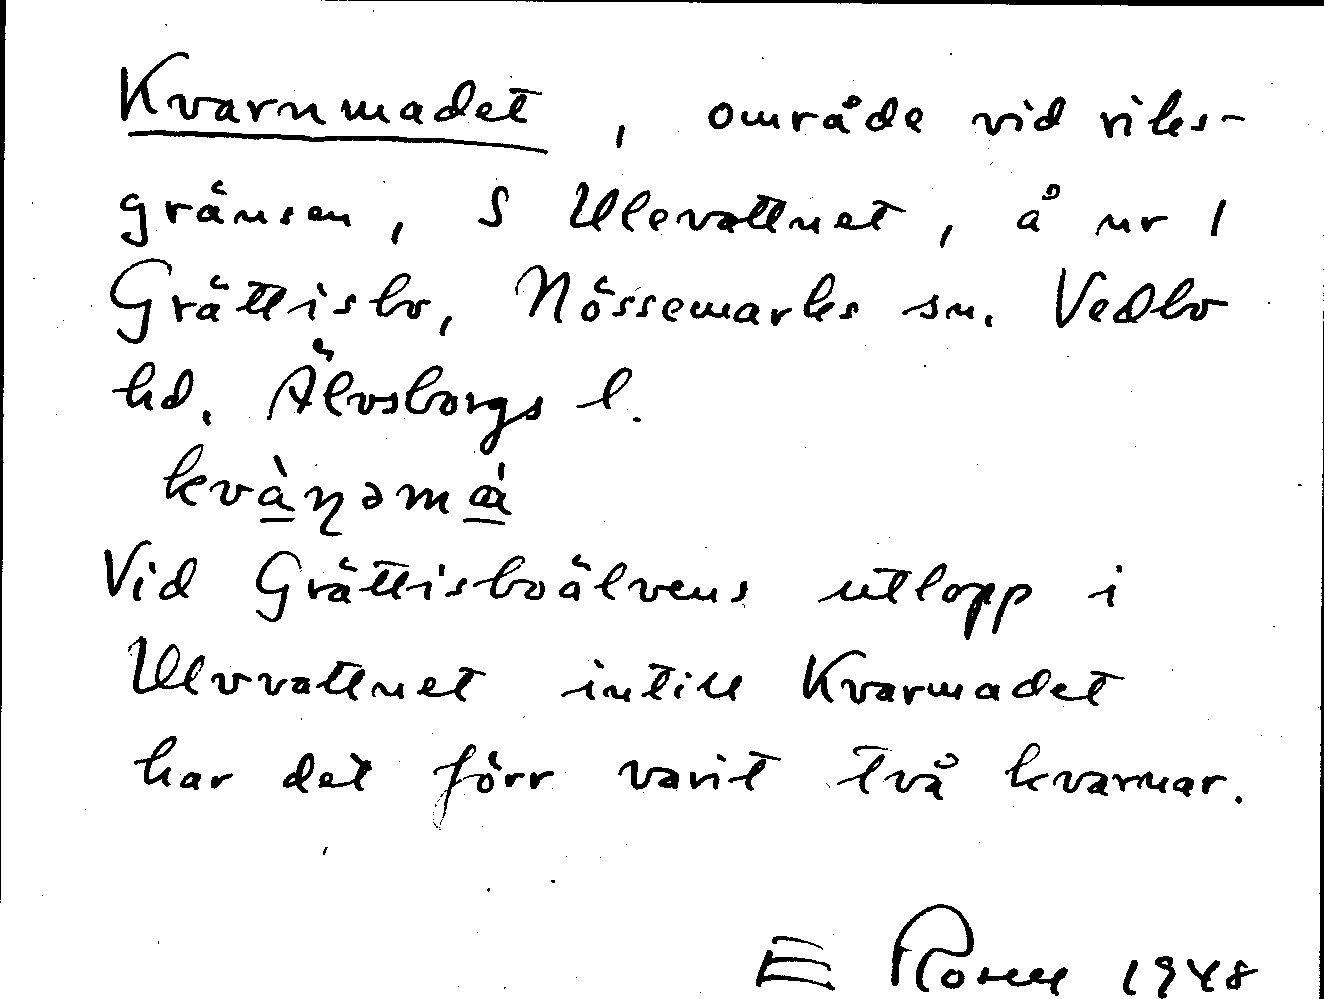 Kvarnmadet, område vid riks-
gränsen, S Ulevattnet, å nr 1
Grättisbo, Nössemarks sn. Vedbo
hd. Älvsborgs l.
kvàṇəmá
Vid Grättisboälvens utlopp i
Ulvvattnet intill Kvarmadet
har det förr varit två kvarnar.
E Rosell 1948